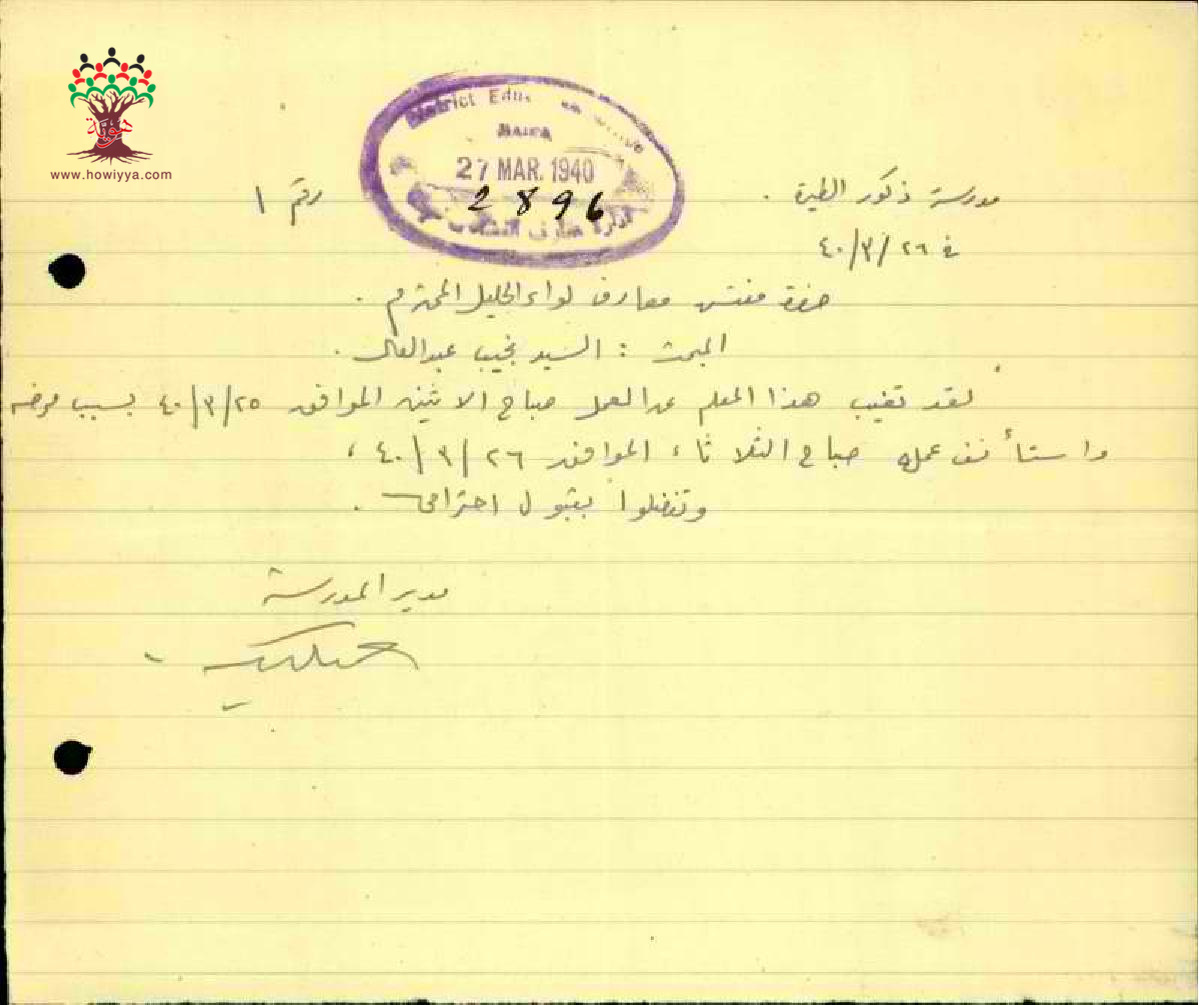 هوية
www.howiyya.com
District Edu
HAIFA
27 MAR. 1940
2896
مدرسة ذكور الطيرة .
رقم ١
في ٢٦/٣/٤٠
حضرة مفتش معارف لواء الجليل المحترم .
المبحث : السيد نجيب عبدالعال .
لقد تغيب هذا المعلم عن العمل صباح الاثنين الموافق ٢٥/٣/٤٠ بسبب مرضه
واستأنف عمله صباح الثلاثاء الموافق ٢٦/٣/٤٠ ،
وتفضلوا بقبول احترامي .
مدير المدرسة